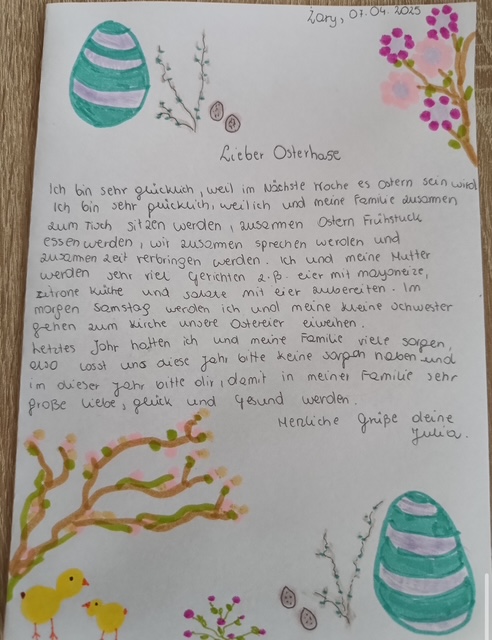 Żary, 07.04.2025
Lieber Osterhase
Ich bin sehr glücklich, weil im Nächste Woche es Ostern sein wird
Ich bin sehr glücklich, weil ich und meine Familie zusammen
zum Tisch sitzen werden, zusammen Ostern Frühstück
essen werden, wir zusammen sprechen werden und
zusammen Zeit verbringen werden. Ich und meine Mutter
werden sehr viel Gerichten z.B. eier mit mayoneize,
zitrone Küche und salate mit eier zubereiten. Im
morgen Samstag werden ich und meine kleine schwester
gehen zum kirche unsere Ostereier eiweihen.
Letztes Jahr hatten ich und meine Familie viele sorgen,
also lasst uns diese Jahr bitte keine sorgen haben und
im dieser Jahr bitte dir, damit in meiner Familie sehr
große liebe, glück und Gesund werden.
Herzliche grüße deine
Julia.